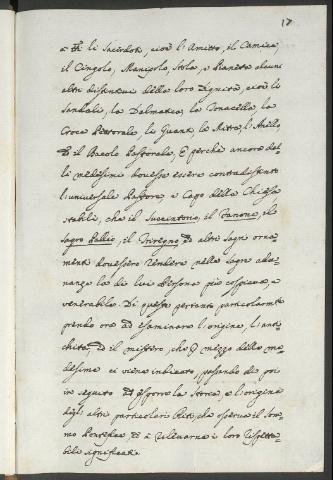 17
a tti li Sacerdoti, cioè l'Amitto, il Camice,
il Cingolo, Manipolo, Stola, e Pianeta alcuni
altri distintivi della loro Dignità, cioè li
Sandali, la Dalmatica, la Tonacella, la
Croce Pettorale, li Guanti, la Mitra, l'Anello,
ed il Bacolo Pastorale, E perchè ancora dal-
li medesimi dovesse essere contradistinto
l'universale Pastore, e Capo della Chiesa
stabilì, che il Succintorio, il Fanone, il
sagro Pallio, il Triregno ed altri sagri orna-
menti dovessero rendere nelle sagre adu-
nanze la di lui Persona più cospicua, e
venerabile. Di questi pertanto particolarmte
prendo ora ad esaminare l'origine, l'anti-
chità, ed il mistero, che p mezzo delle me-
desime ci viene indicato, passando di poi
in seguito ad esporre la Storia, e l'origine
degli altri particolari Riti, che osserva il Som-
mo Pontefice, ed a rilevarne i loro rispetta-
bili significati.